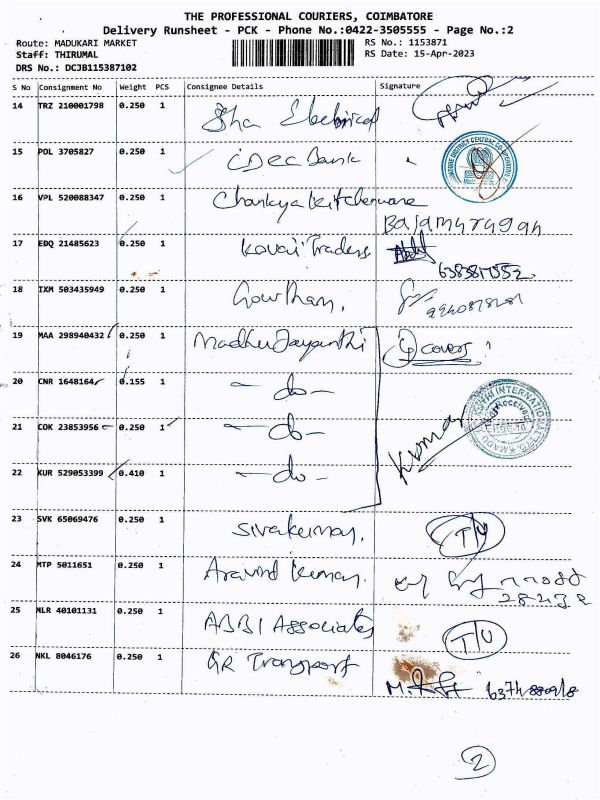 THE PROFESSIONAL COURIERS, COIMBATORE
Delivery Runsheet - PCK - Phone No.:0422-3505555 - Page No.:2
Route: MADUKARI MARKET RS No.: 1153871
Staff: THIRUMAL RS Date: 15-Apr-2023
DRS No.: DCJB115387102
S No Consignment No Weight PCS Consignee Details Signature
14 TRZ 210001798 0.250 1 Sha Electrical
15 POL 3705827 0.250 1 Bank
16 VPL 520088347 0.250 1 Chankya Kitchenware
Balamurugan
17 EDQ 21485623 0.250 1 Kovai Traders
18 IXM 503435949 0.250 1 Gowtham.
19 MAA 298940432 0.250 1 Madhu Jayanthi 4 covers
20 CNR 1648164 0.155 1 - do -
21 COK 23853956 0.250 1 - do -
Kumar
22 KUR 529053399 0.410 1 - do -
23 SVK 65069476 0.250 1 Sivakumar. T/U
24 MTP 5011651 0.250 1 Aravind Kumar.
25 MLR 40101131 0.250 1 ABBI Associates T/U
26 NKL 8046176 0.250 1 GR Transport
2